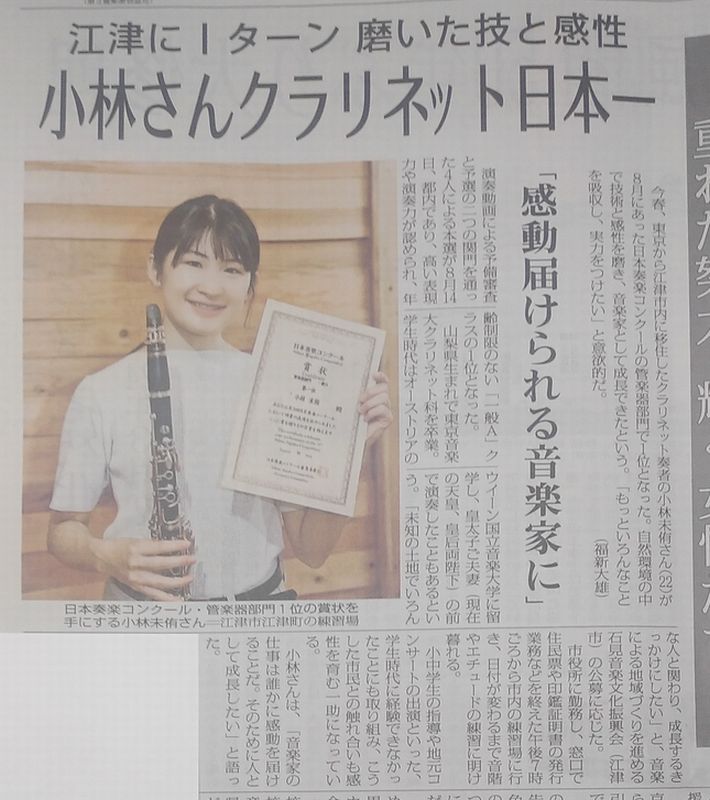 江津にIターン 磨いた技と感性
小林さんクラリネット日本一
「感動届けられる音楽家に」
今春、東京から江津市内に移住したクラリネット奏者の小林未侑さん(22)が
8月にあった日本奏楽コンクールの管楽器部門で1位となった。自然環境の中
で技術と感性を磨き、音楽家として成長できたという。「もっといろんなこと
を吸収し、実力をつけたい」と意欲的だ。
(福新大雄)
演奏動画による予備審査
と予選の二つの関門を通っ
た4人による本選が8月14
日、都内であり、高い表現
力や演奏力が認められ、年
齢制限のない「一般A」ク
ラスの1位となった。
山梨県生まれで東京音楽
大クラリネット科を卒業。
学生時代はオーストリアの
ウイーン国立音楽大学に留
学し、皇太子ご夫妻(現在
の天皇、皇后両陛下)の前
で演奏したこともあるとい
う。「未知の土地でいろん
な人と関わり、成長するき
っかけにしたい」と、音楽
による地域づくりを進める
石見音楽文化振興会(江津
市)の公募に応じた。
市役所に勤務し、窓口で
住民票や印鑑証明書の発行
業務などを終えた午後7時
ごろから市内の練習場に行
き、日付が変わるまで音階
やエチュードの練習に明け
暮れる。
小中学生の指導や地元コ
ンサートの出演といった、
学生時代に経験できなかっ
たことにも取り組み、こう
した市民との触れ合いも感
性を育む一助になってい
る。
小林さんは、「音楽家の
仕事は誰かに感動を届け
ることだ。そのために人と
して成長したい」と語っ
た。
日本奏楽コンクール・管楽器部門1位の賞状を
手にする小林未侑さん=江津市江津町の練習場
日本奏楽コンクール
賞状
第一位
小林 未侑 殿